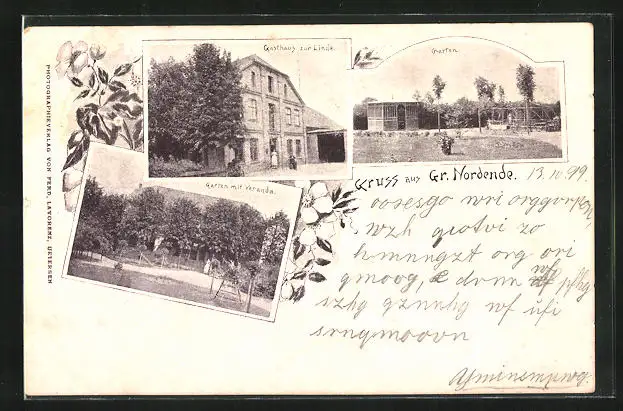 PHOTOGRAPHIEVERLAG VON FERD. LAVORENZ, UETERSEN
Gasthaus zur Linde.
Garten.
Garten mit Veranda.
Gruss aus Gr. Nordende. 13.10.99.
oosesgo wri
wzh giotvi zo
hmnngzt org ori
gmoog, drnn wf
szhg gznnhg wf üfi
srngmoovn